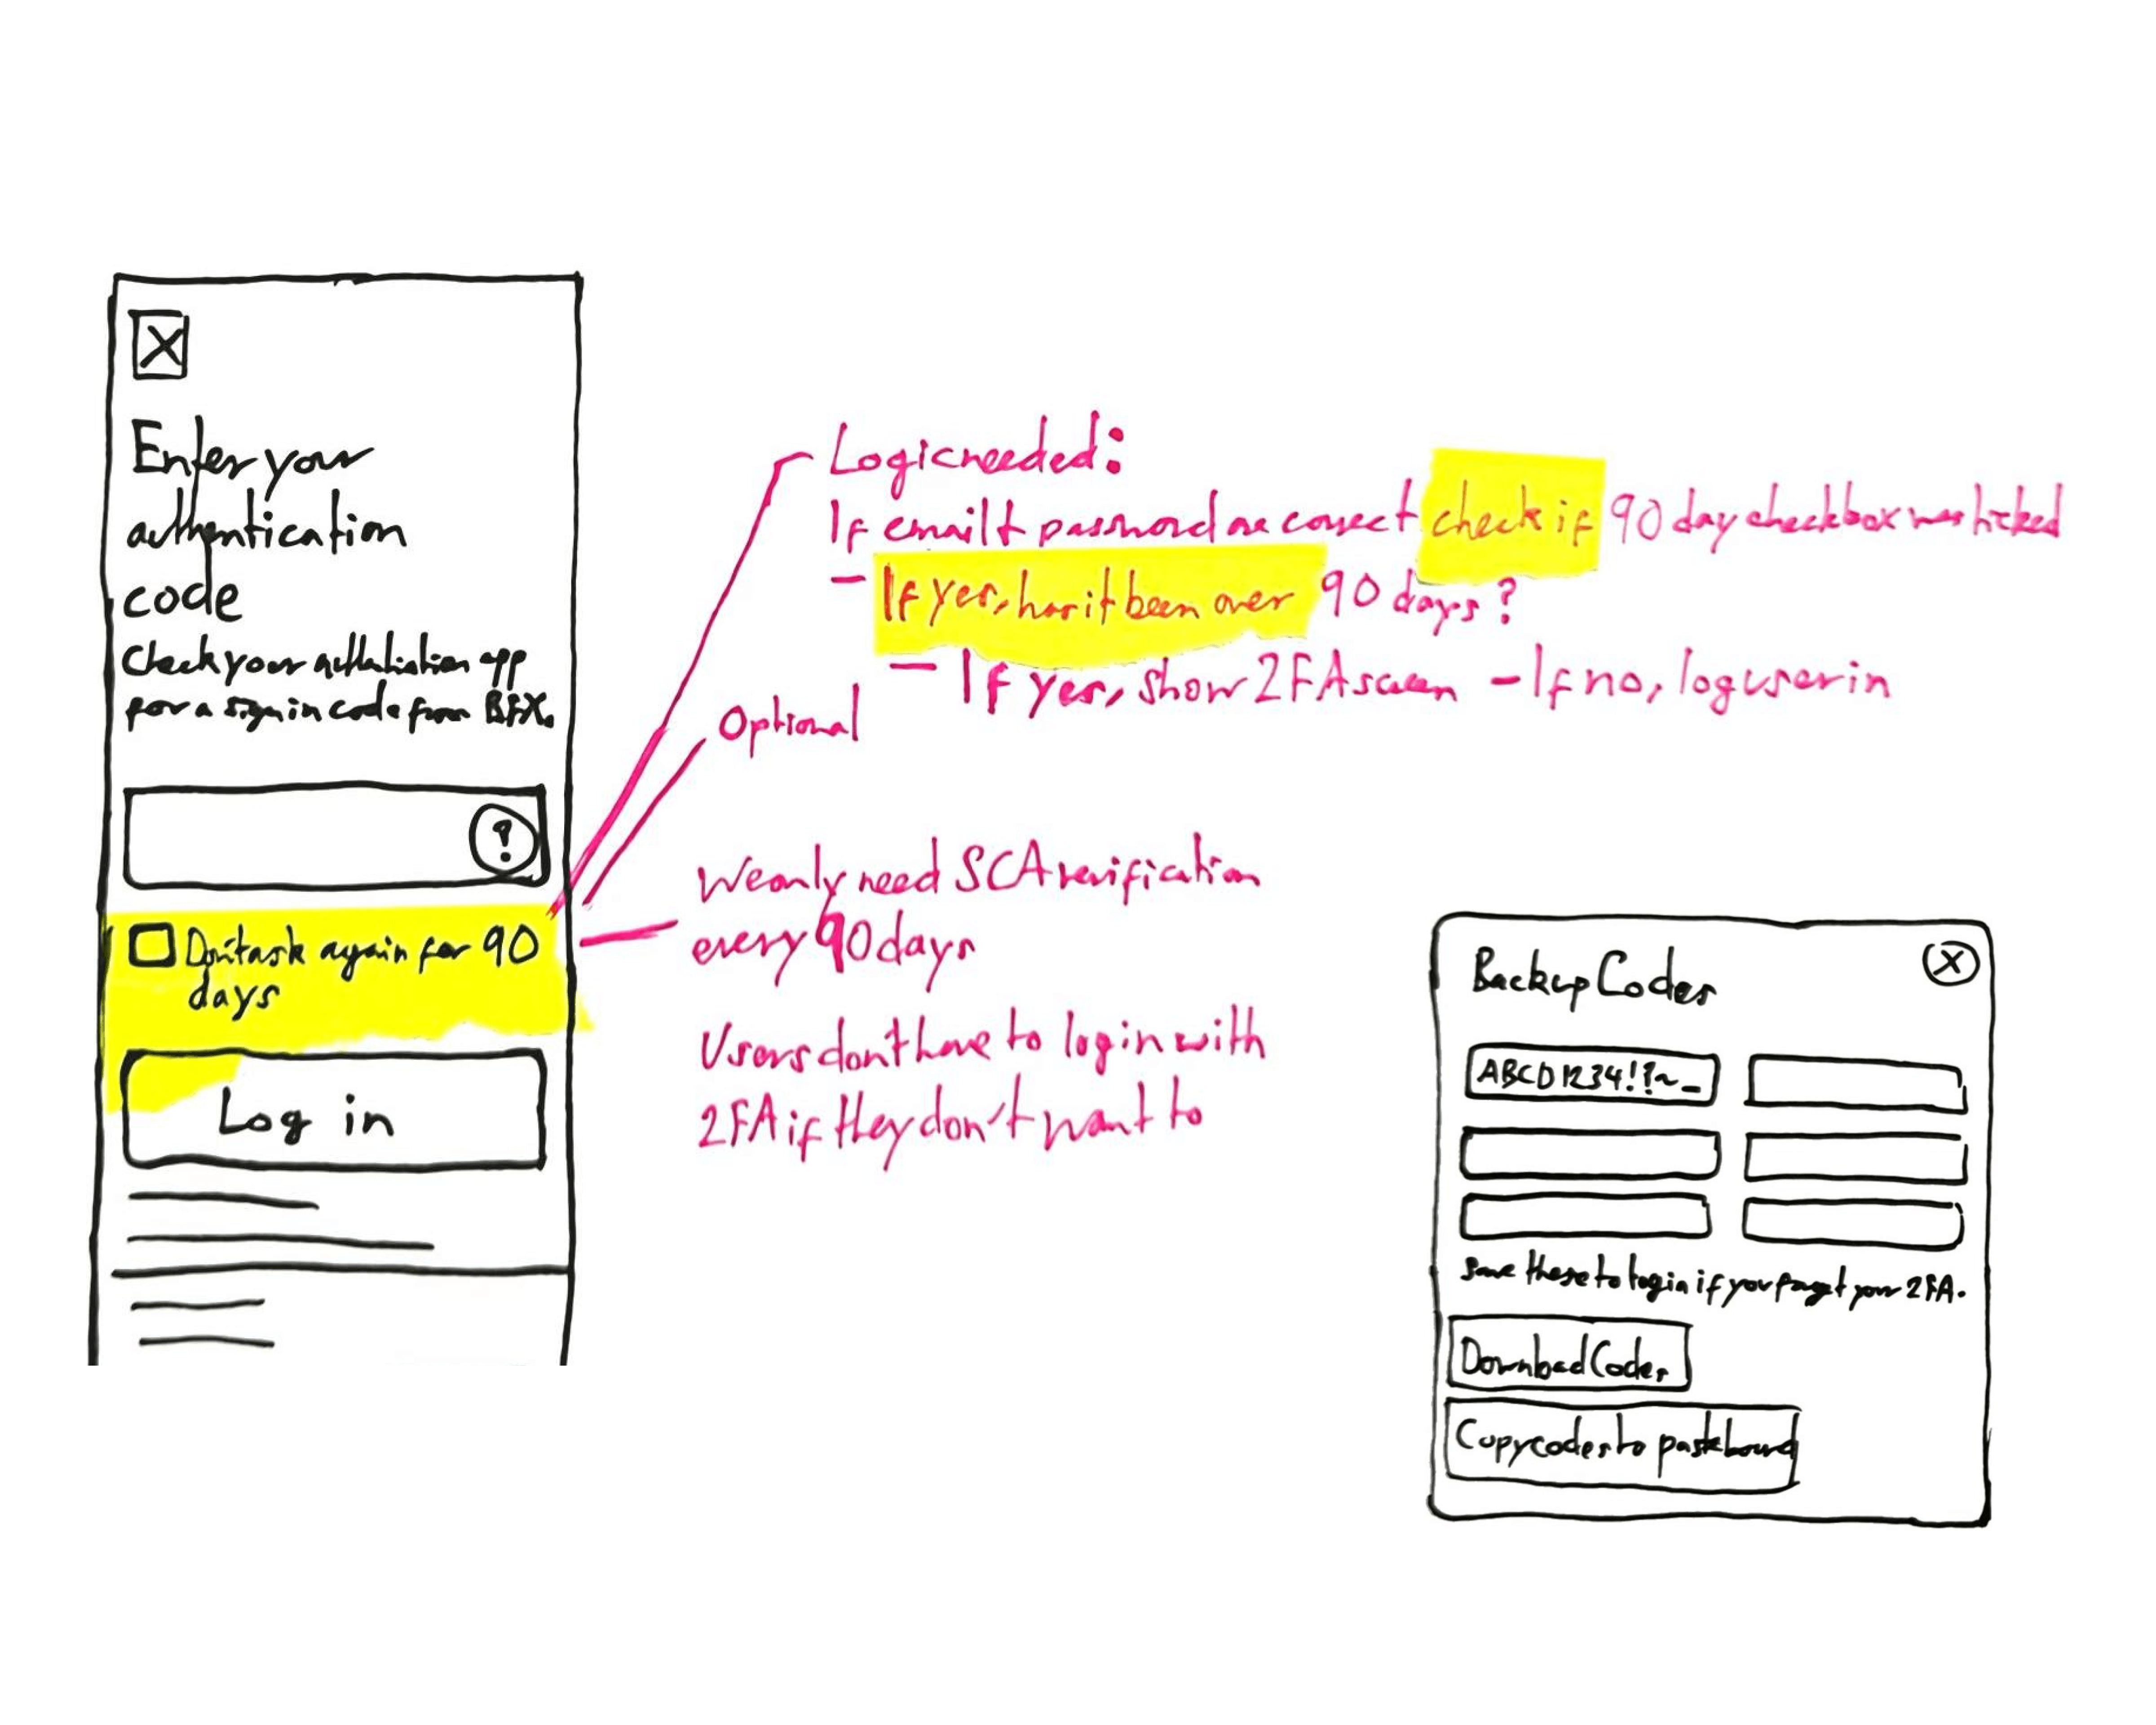 Enter your
authentication
code
Check your authentication app
for a sign in code from BFX.
?
Don't ask again for 90
days
Log in
Logic needed:
If email + password are correct check if 90 day checkbox was ticked
- If yes, has it been over 90 days?
- If yes, show 2FA screen - If no, log user in
Optional
We only need SCA verification
every 90 days
Users don't have to log in with
2FA if they don't want to
Backup Codes
X
ABCD1234!?~_
Save these to login if you forget your 2FA.
Download Codes
Copy codes to pasteboard